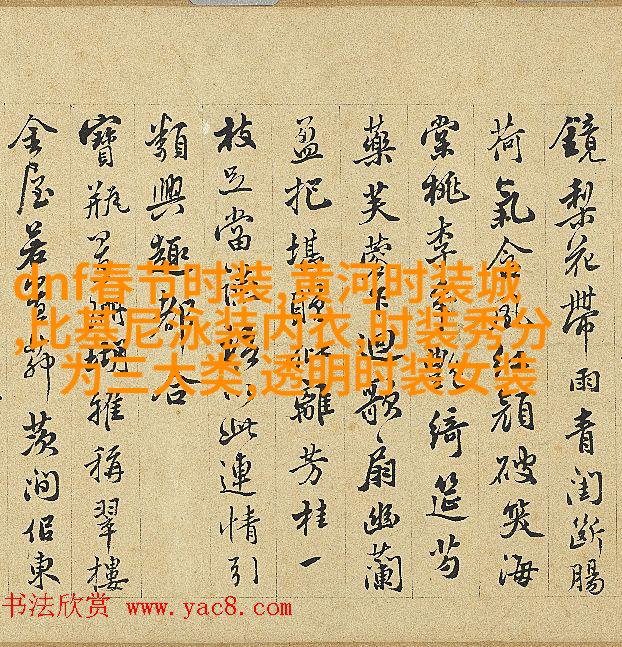 鏡梨花帶雨青閨斷腸
荷氣含風紅顏破笑海
棠桃李爭艷綺筵芍
藥芙蓉下迴歌扇幽蘭
盈把堪贈離芳桂一
枝足當以此連情引
類興趣都合
寶瓶珊瑚雅稱翠樓
金屋若澗侶東
dnf春节时装,黄河时装城
,比基尼泳装内衣,时装秀分
为三大类,透明时装女装
书法欣赏 www.yac8.com